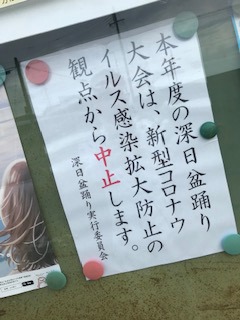 本年度の深日盆踊り
大会は、新型コロナウ
イルス感染拡大防止の
観点から中止します。
深日盆踊り実行委員会